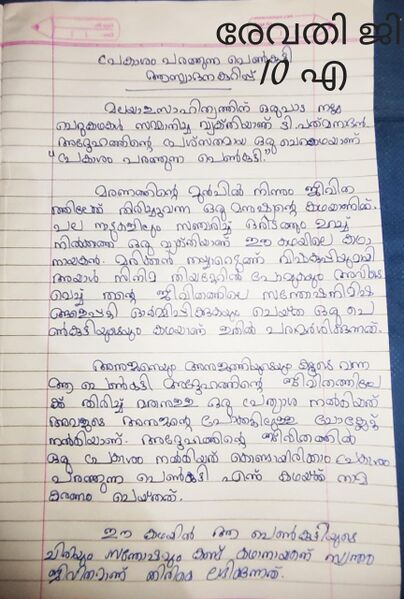 രേവതി ജി
10 എ
പ്രകാശം പരത്തുന്ന പെൺകുട്ടി
ആസ്വാദനകുറിപ്പ്
മലയാളസാഹിത്യത്തിന് ഒരുപാട് നല്ല
ചെറുകഥകൾ സമ്മാനിച്ച വ്യക്തിയാണ് ടി. പത്മനാഭൻ.
അദ്ദേഹത്തിന്റെ പ്രശസ്തമായ ഒരു ചെറുകഥയാണ്
"പ്രകാശം പരത്തുന്ന പെൺകുട്ടി."
മരണത്തിന്റെ മുൻപിൽ നിന്നും ജീവിത
ത്തിലേക്ക് തിരിച്ചുവന്ന ഒരു മനുഷ്യന്റെ കഥയാണിത്.
പല നാടുകളിലും സഞ്ചരിച്ച് ഒരിടത്തും ഉറച്ച്
നിൽക്കാത്ത ഒരു വ്യക്തിയാണ് ഈ കഥയിലെ കഥാ
നായകൻ. മരിക്കാൻ തയ്യാറെടുത്ത്
അയാൾ സിനിമ തിയറ്ററിൽ പോവുകയും അവിടെ
വെച്ച് തന്റെ ജീവിതത്തിലെ സന്തോഷനിമിഷ
ങ്ങളെപ്പറ്റി ഓർമ്മിപ്പിക്കുകയും ചെയ്ത ഒരു പെ
ൺകുട്ടിയുടെയും കഥയാണ് ഇതിൽ പരാമർശിക്കുന്നത്.
അനുജന്റെയും അനുജത്തിയുടെയും കൂടെ വന്ന
ആ പെൺകുട്ടി അദ്ദേഹത്തിന്റെ ജീവിതത്തിലേ
ക്ക് തിരിച്ച് വരാനുള്ള ഒരു പ്രത്യാശ നൽകിയത്
അവളുടെ അനുജന്റെ ചോക്ലേറ്റ്
നൽകിയാണ്. അദ്ദേഹത്തിന്റെ ജീവിതത്തിൽ
ഒരു പ്രകാശം നൽകിയത് കൊണ്ടായിരിക്കാം പ്രകാശം
പരത്തുന്ന പെൺകുട്ടി എന്ന് കഥയ്ക്ക് നാമ
കരണം ചെയ്തത്.
ഈ കഥയിൽ ആ പെൺകുട്ടിയുടെ
ചിരിയും സന്തോഷവും കണ്ട് കഥാനായകന് സ്വന്തം
ജീവിതമാണ് തിരികെ ലഭിക്കുന്നത്.